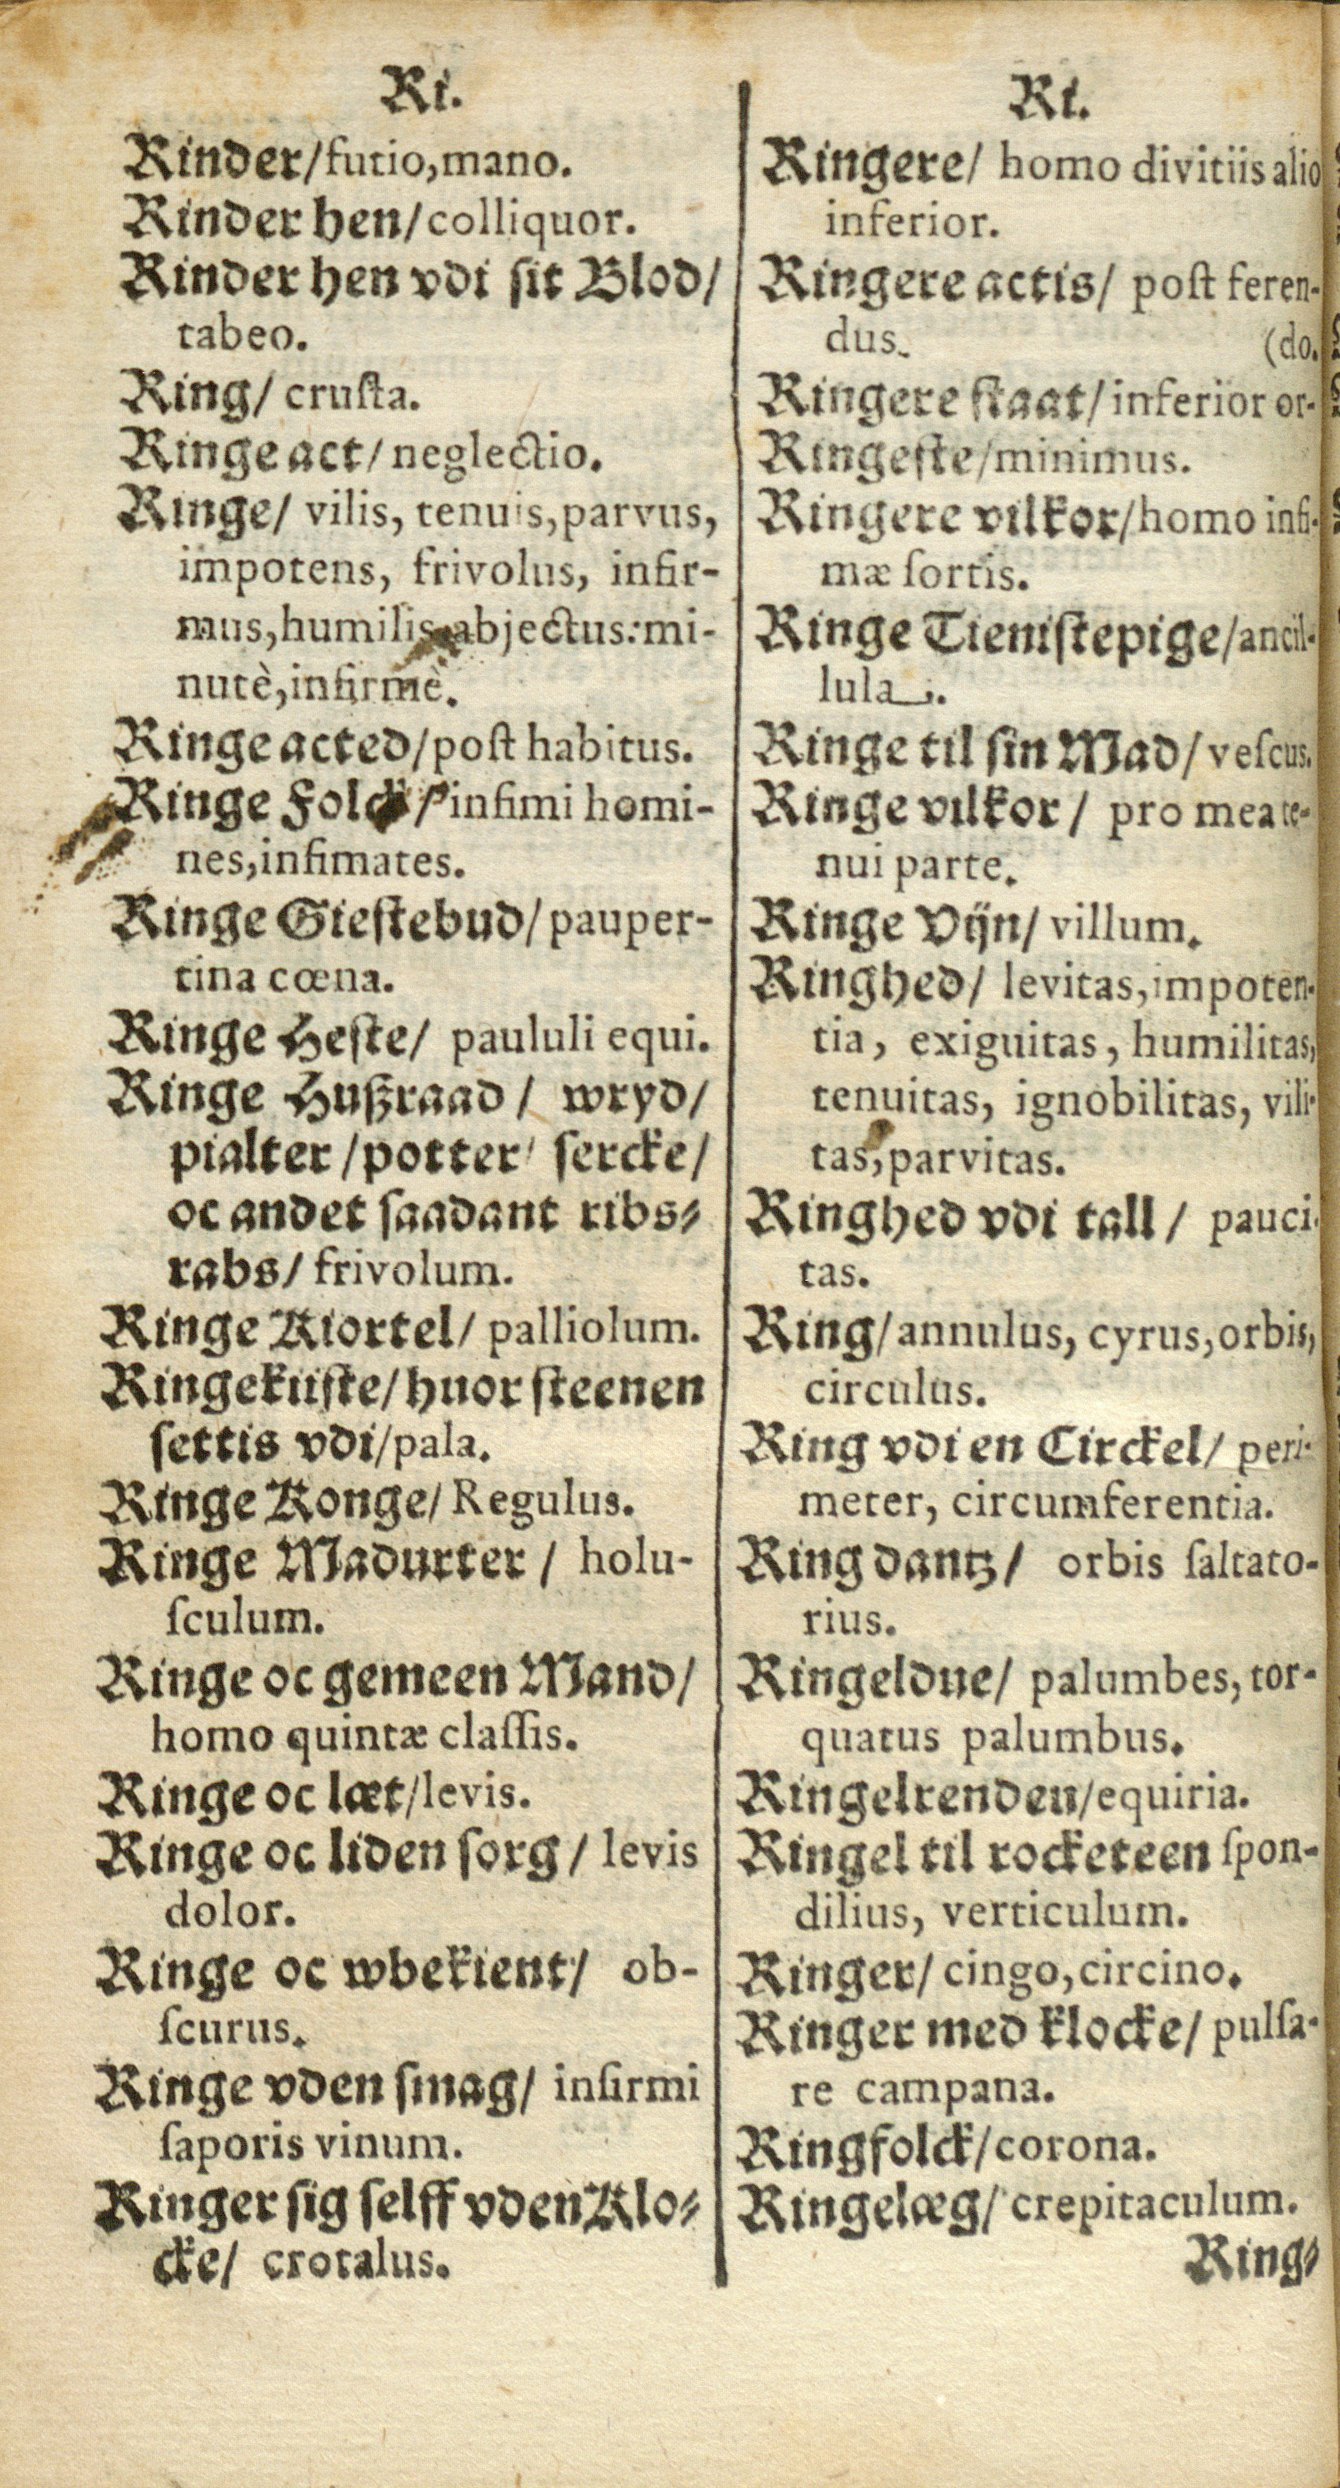 Ri.
Rinder/futio,mano.
Rinder hen/colliquor.
Rinder hen vdi ſit Blod/
tabeo.
Ring/ cruſta.
Ringe act/neglectio.
Ringe/ vilis, tenuis,parvus,
impotens, frivolus, infir-
mus,humilis,abjectus:mi-
nutè,infirmè.
Ringe acted/poſt habitus.
Ringe Folck/infimi homi-
nes,infimates.
Ringe Gieſtebud/pauper-
tina cœna.
Ringe Heſte/ paululi equi.
Ringe Hußraad/ wryd/
pialter/potter/ ſercke/
oc andet ſaadant ribs-
rabs/frivolum.
Ringe Kiortel/ palliolum.
Ringekiiſte/huor ſteenen
ſettis vdi/pala.
Ringe Konge/Regulus.
Ringe Madurter/ holu-
ſculum.
Ringe oc gemeen Mand/
homo quintæ claſſis.
Ringe oc læt/levis.
Ringe oc liden ſorg/ levis
dolor.
Ringe oc wbekient/ ob-
ſcurus.
Ringe vden ſmag/ inſirmi
ſaporis vinum.
Ringer ſig ſelff vden Klo-
cke/ crotalus.
Ri.
Ringere/ homo divitiis alio
inferior.
Ringere actis/ poſt feren-
dus. (do.
Ringere ſtaat/inferior or-
Ringeſte/minimus.
Ringere vilkor/homo infi-
mæ ſortis.
Ringe Tieniſtepige/ancil-
lula.
Ringe til ſin Mad/veſcus.
Ringe vilkor/ pro mea te-
nui parte.
Ringe Vijn/ villum.
Ringhed/ levitas,impoten-
tia, exiguitas, humilitas,
tenuitas, ignobilitas, vili-
tas,parvitas.
Ringhed vdi tall/ pauci-
tas.
Ring/annulus, cyrus,orbis,
circulus.
Ring vdi en Circkel/ peri-
meter, circumferentia.
Ring dantz/ orbis ſaltato-
rius.
Ringeldue/ palumbes, tor-
quatus palumbus.
Ringelrenden/equiria.
Ringel til rocketeen ſpon-
dilius, verticulum.
Ringer/cingo,circino.
Ringer med klocke/pulſa-
re campana.
Ringfolck/corona.
Ringelæg/crepitaculum.
Ring-